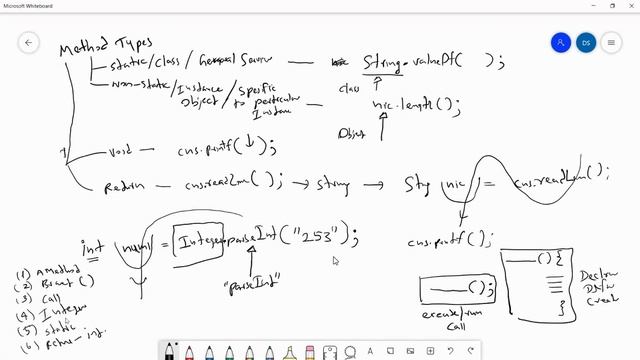 Microsoft Whiteboard
Method Types
static/class/General Source — String.valueOf( );
class
Non-static/Instance/Specific
Object to particular
Instance — nic.length();
Object
void — cns.printf(↓);
Return — cns.readLine( ); → String → nic = cns.readLine();
cns.printf();
int num1 = Integer.parseInt("253");
"parseInt"
(1) A Method
(2) ()
(3) Call
(4) Integer
(5) static
(6) Return - int.
();
execute/run
call
(){
}
Declare
Define
Create
DS